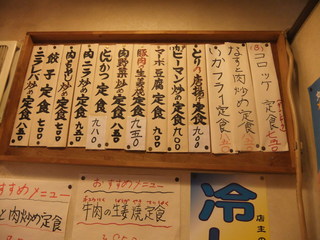 (8)コロッケ定食 七五〇
なすと肉炒め定食
いかフライ定食
とり唐揚定食 九〇〇
ピーマン炒め定食 九〇〇
マーボ豆腐定食
豚肉の生姜焼定食 九五〇
肉野菜炒め定食 八五〇
とんかつ定食 九八〇
肉ニラ炒め定食 九五〇
肉もやし炒め定食 八五〇
餃子定食 七〇〇
ニラレバ炒め定食 八五〇
すすめメニュー
と肉炒め定食
おすすめメニュー
牛肉の生姜焼定食
冷し
店主の